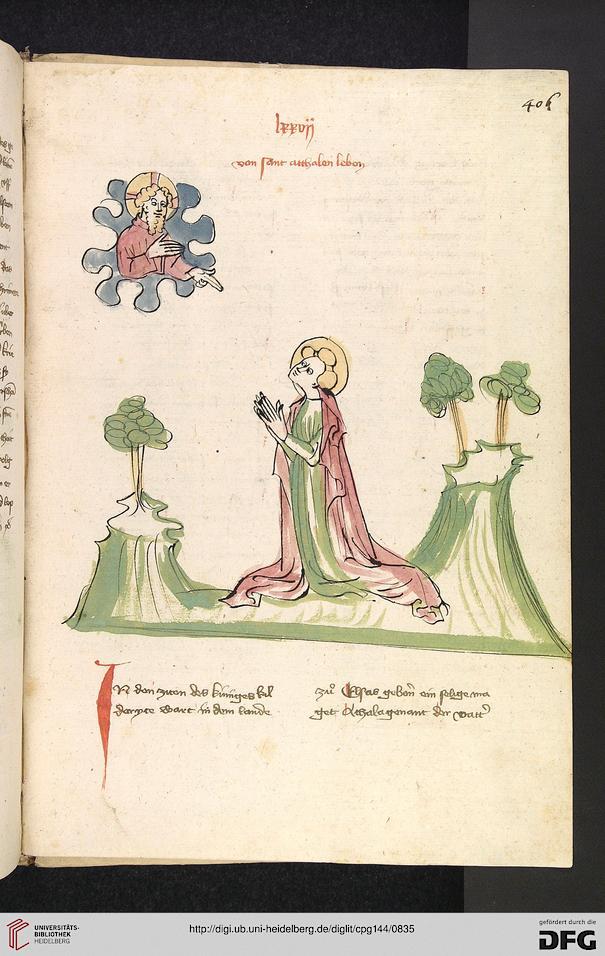 406
lxxvij
von sant atthalen leben
In den ziten des küniges hil
deryce wart in dem lande
zů Elsas geborn ein selige ma
get Athala genant der vatt'
UNIVERSITÄTS-
BIBLIOTHEK
HEIDELBERG
http://digi.ub.uni-heidelberg.de/diglit/cpg144/0835
gefördert durch die
DFG